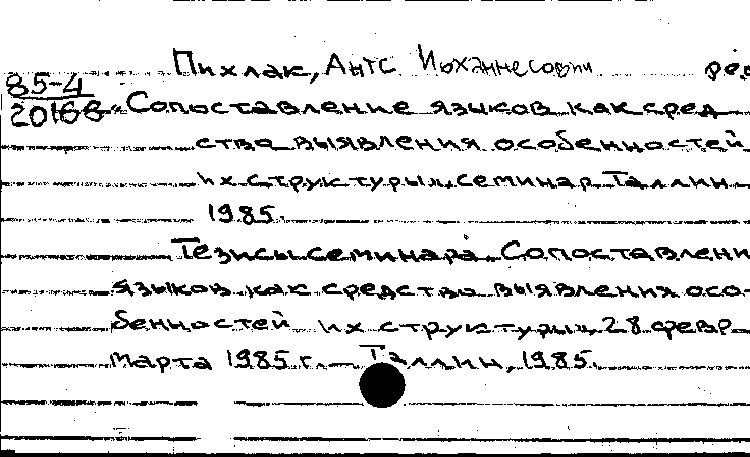 Пихлак, Антс Иоханнесович ред
85-4
2016б
"Сопоставление языков как сред
ство выявления особенностей
их структуры", семинар. Таллин.
1985.
Тезисы семинара "Сопоставлени
языков как средство выявления осо-
бенностей их структуры", 28 февр. -
марта 1985 г. — Таллин, 1985.